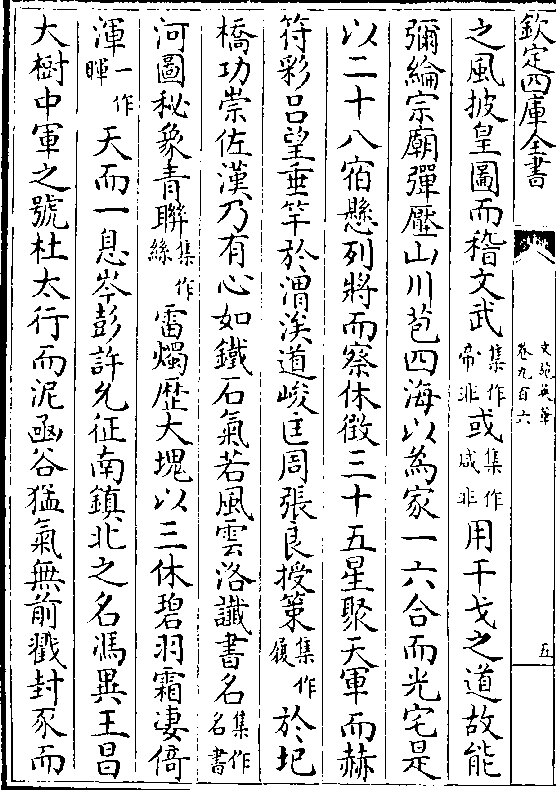 欽定四庫全書
文苑英華
卷九百六
五
之風披皇圖而稽文武集作帝非或集作咸非用干戈之道故能
彌綸宗廟彈壓山川苞四海以為家一六合而光宅是
以二十八宿懸列將而察休徴三十五星聚天軍而赫
符彩吕望垂竿於渭渼道峻匡周張良授策集作履於圯
橋功崇佐漢乃有心如鐵石氣若風雲洛讖書名集作名書
河圖秘象青聯集作絲雷燭歴大塊以三休碧羽霜凄倚
渾一作暉天而一息岑彭許允征南鎮北之名馮異王昌
大樹中軍之號杜太行而泥函谷猛氣無前戮封豕而